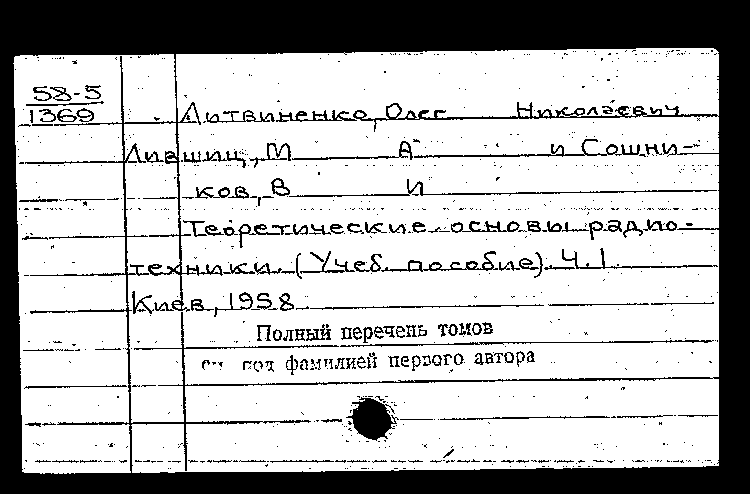 58-5
1369
Литвиненко, Олег Николаевич
Лившиц, М А и Сошни-
ков, В И
Теоретические основы радио-
техники. (Учеб. пособие). Ч. 1
Киев, 1958
Полный перечень томов
см под фамилией первого автора